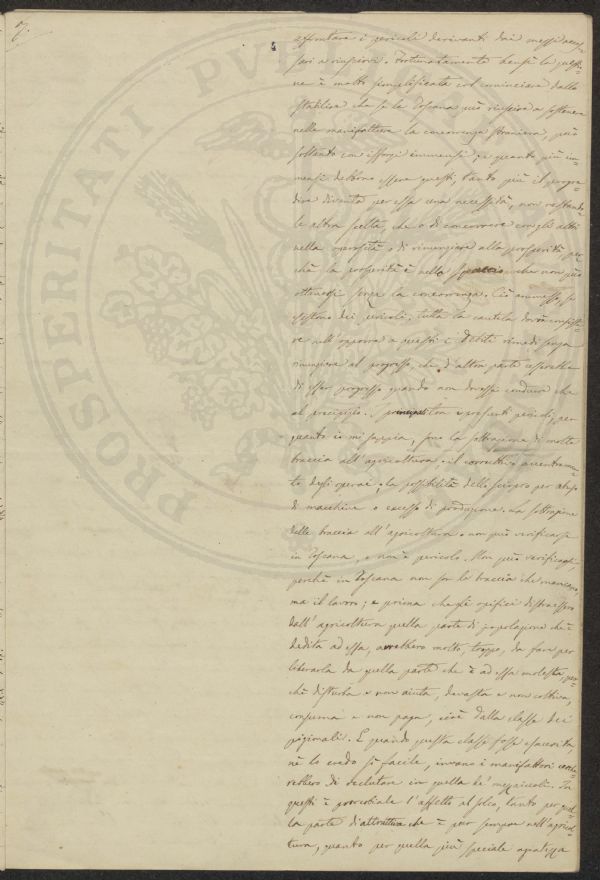 7.
affrontare i pericoli derivanti dai mezzi neces-
sari a riuscirvi. Fortunatamente bensì la questio-
ne è molto semplicizzata col cominciare dallo
stabilire che se la Toscana può riuscire a sostenere
nelle manifatture la concorrenza straniera, può
soltanto con isforzi immensi; e quanto più im-
mensi debbono essere questi, tanto più il progre-
dire diventa per essa una necessità, non restando-
le altra scelta, che o di concorrere cogli altri
nella operosità o di rinunziare alla prosperità per-
chè la prosperità è nello spaccio che non può
ottenersi senza la concorrenza. Ciò ammesso, se
esistono dei pericoli, tutta la cautela dovrà consiste-
re nell'opporre a questi i debiti rimedi senza
rinunziare al progresso, che d'altra parte cesserebbe
di esser progresso quando non dovesse condurre che
al precipizio. I principali e presenti pericoli, per
quanto io mi sappia, sono la sottrazione di molte
braccia all'agricoltura; il corruttivo accentramen-
to degli operai; la possibilità dello sciopro per abuso
di macchine o eccesso di produzione. La sottrazione
delle braccia all'agricoltura o non può verificarsi
in Toscana, o non è pericolo. Non può verificarsi,
perchè in Toscana non son le braccia che mancano,
ma il lavoro; e prima che gli opifici distraessero
dall'agricoltura quella parte di popolazione che è
dedita ad essa, avrebbero molto, troppo, da fare per
liberarla da quella parte che è ad essa molesta, per-
chè disturba e non aiuta, devasta e non coltiva,
consuma e non paga, cioè dalla classe dei
pigionali. E quando questa classe fosse esaurita,
nè lo credo sì facile, invano i manifattori cerche-
rebbero di reclutare in quella de' mezzaioli. In
questi è proverbiale l'affetto al solco, tanto per quel-
la parte d'attrattiva che è pur sempre nell'agricol-
tura, quanto per quella più speciale
PROSPERITATI PUBLICAE